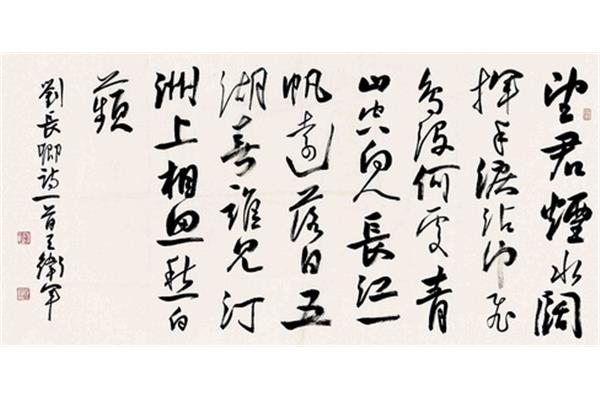 望君煙水闊
揮手淚沾巾飛
鳥没何處青
山空向人長江一
帆遠落日五
湖春誰見汀
洲上相思愁白
蘋
劉長卿詩一首王衛軍